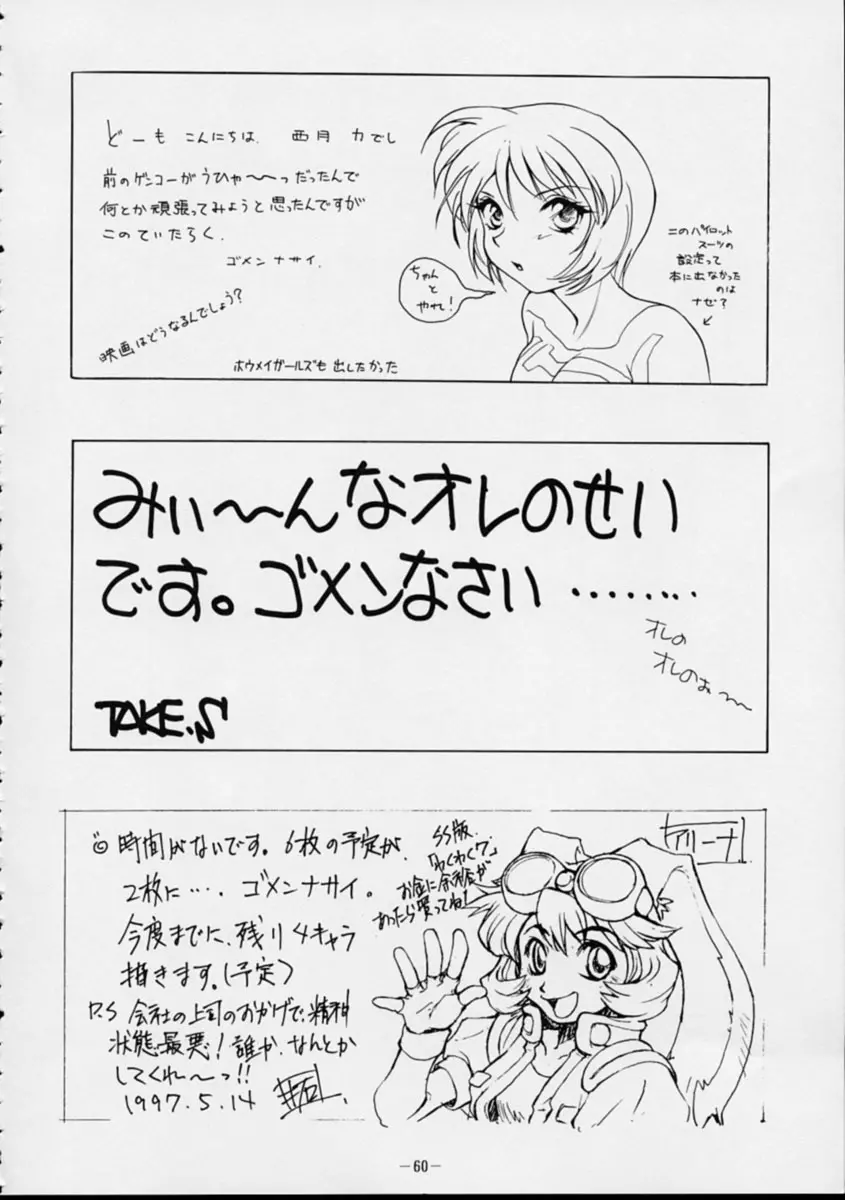 どーも こんにちは. 西月 力でし
前のゲンコーがうひゃ〜〜っだったんで
何とか頑張ってみようと思ったんですが
このていたらく.
ゴメンナサイ.
映画はどうなるんでしょう?
ホウメイガールズも出したかった
ちゃん
と
やれ!
このパイロット
スーツの
設定って
本に出なかった
のは
ナゼ?
みぃ〜〜んなオレのせい
です。ゴメンなさい ........
オレの
オレのぉ〜〜
TAKE.S
時間がないです。6枚の予定が、
2枚に・・・. ゴメンナサイ。
今度までに、残り4キャラ
描きます。(予定)
P.S 会社の上司のおかげで、精神
状態最悪!誰か、なんとか
してくれ〜っ!!
1997.5.14
SS版、
「わくわく7」
お金に余裕が
あったら買ってね!
アリーナ
-60-